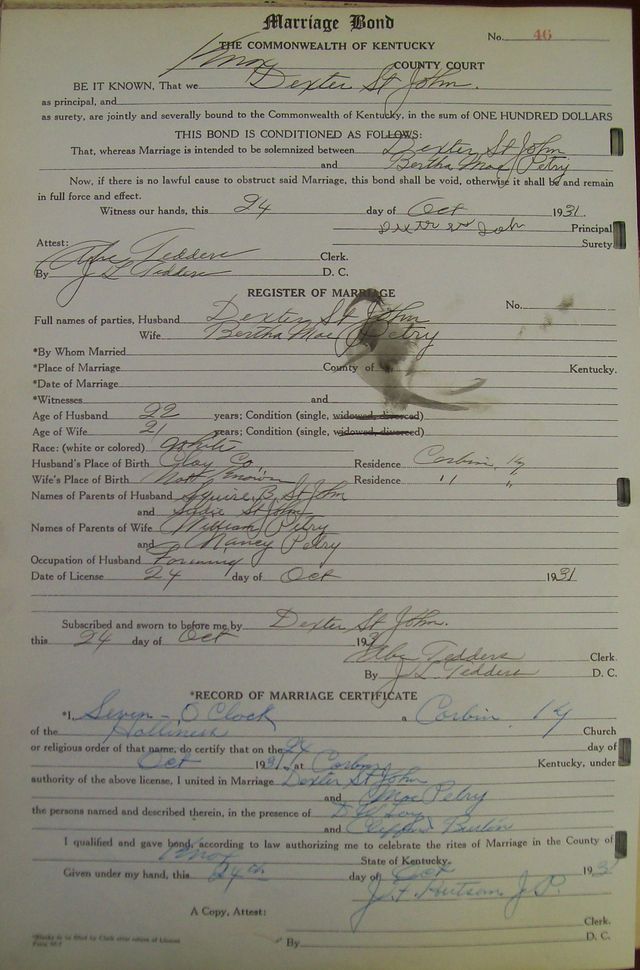 Marriage Bond
No. 46
THE COMMONWEALTH OF KENTUCKY
Knox COUNTY COURT
BE IT KNOWN, That we Dexter St John.
as principal, and
as surety, are jointly and severally bound to the Commonwealth of Kentucky, in the sum of ONE HUNDRED DOLLARS
THIS BOND IS CONDITIONED AS FOLLOWS:
That, whereas Marriage is intended to be solemnized between Dexter St John
and Bertha Mae Petry
Now, if there is no lawful cause to obstruct said Marriage, this bond shall be void, otherwise it shall be and remain
in full force and effect.
Witness our hands, this 24 day of Oct 1931.
Principal
Surety
Attest:
Tedders Clerk.
By J L Tedders D. C.
REGISTER OF MARRIAGE
No.
Full names of parties, Husband Dexter St John
Wife Bertha Mae Petry
*By Whom Married
*Place of Marriage County of Kentucky.
*Date of Marriage
*Witnesses and
Age of Husband 22 years; Condition (single, widowed, divorced)
Age of Wife 21 years; Condition (single, widowed, divorced)
Race: (white or colored) White
Husband's Place of Birth Clay Co., Residence Corbin, Ky
Wife's Place of Birth Not Known Residence " "
Names of Parents of Husband Squire B. St John
and Sadie St John
Names of Parents of Wife William Petry
and Nancy Petry
Occupation of Husband Farming
Date of License 24 day of Oct 1931
Subscribed and sworn to before me by Dexter St John.
this 24 day of Oct 193
Tedders Clerk
By J L Tedders D. C.
*RECORD OF MARRIAGE CERTIFICATE
*I, Seven-O Clock a Corbin, Ky
of the Holliness Church
or religious order of that name, do certify that on the 24 day of
Oct 1931, at Corbin Kentucky, under
authority of the above license, I united in Marriage Dexter St John
and Mae Petry
the persons named and described therein, in the presence of
and
I qualified and gave bond, according to law authorizing me to celebrate the rites of Marriage in the County of
Knox State of Kentucky.
Given under my hand, this 24th day of Oct 193
J. F. Hutson J P.
A Copy, Attest:
Clerk.
By D. C.